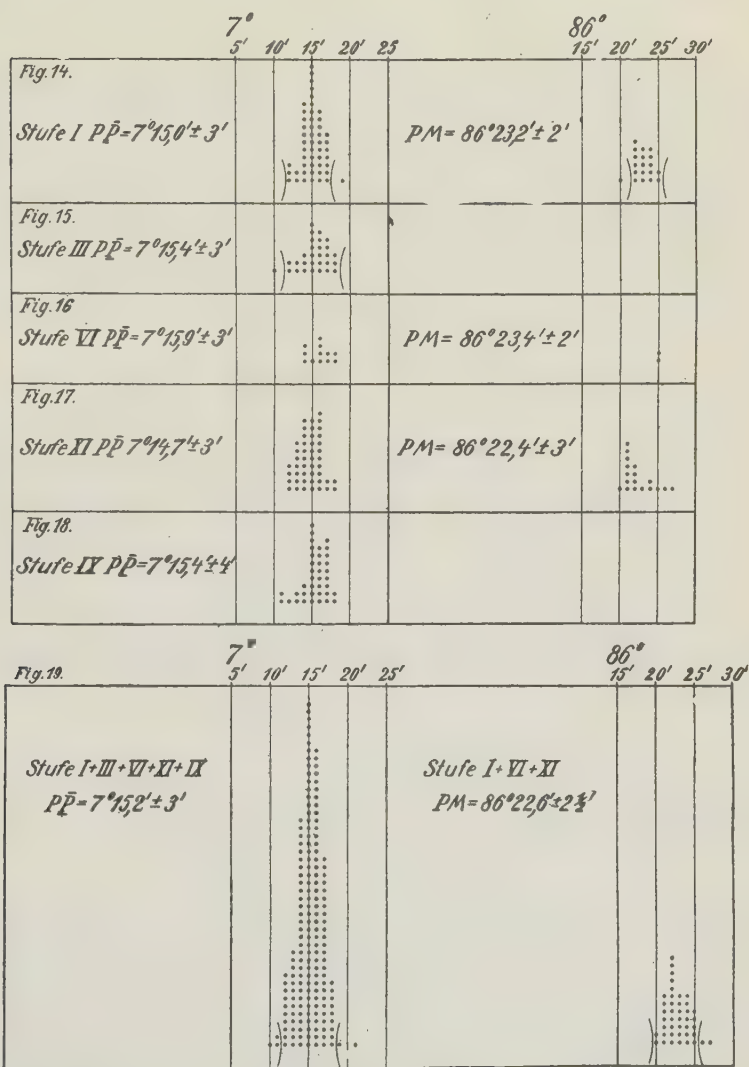 7° 86°
5' 10' 15' 20' 25 15' 20' 25' 30'
Fig. 14.
Stufe I PP̄ = 7°15,0' ± 3' PM = 86°23,2' ± 2'
Fig. 15.
Stufe III PP̄ = 7°15,4' ± 3'
Fig. 16
Stufe VI PP̄ = 7°15,9' ± 3' PM = 86°23,4' ± 2'
Fig. 17.
Stufe XI PP̄ 7°14,7' ± 3' PM = 86°22,4' ± 3'
Fig. 18.
Stufe IX PP̄ = 7°15,4' ± 4'
7° 86°
Fig. 19. 5' 10' 15' 20' 25' 15' 20' 25' 30'
Stufe I + III + VI + XI + IX Stufe I + VI + XI
PP̄ = 7°15,2' ± 3' PM = 86°22,6' ± 2½'